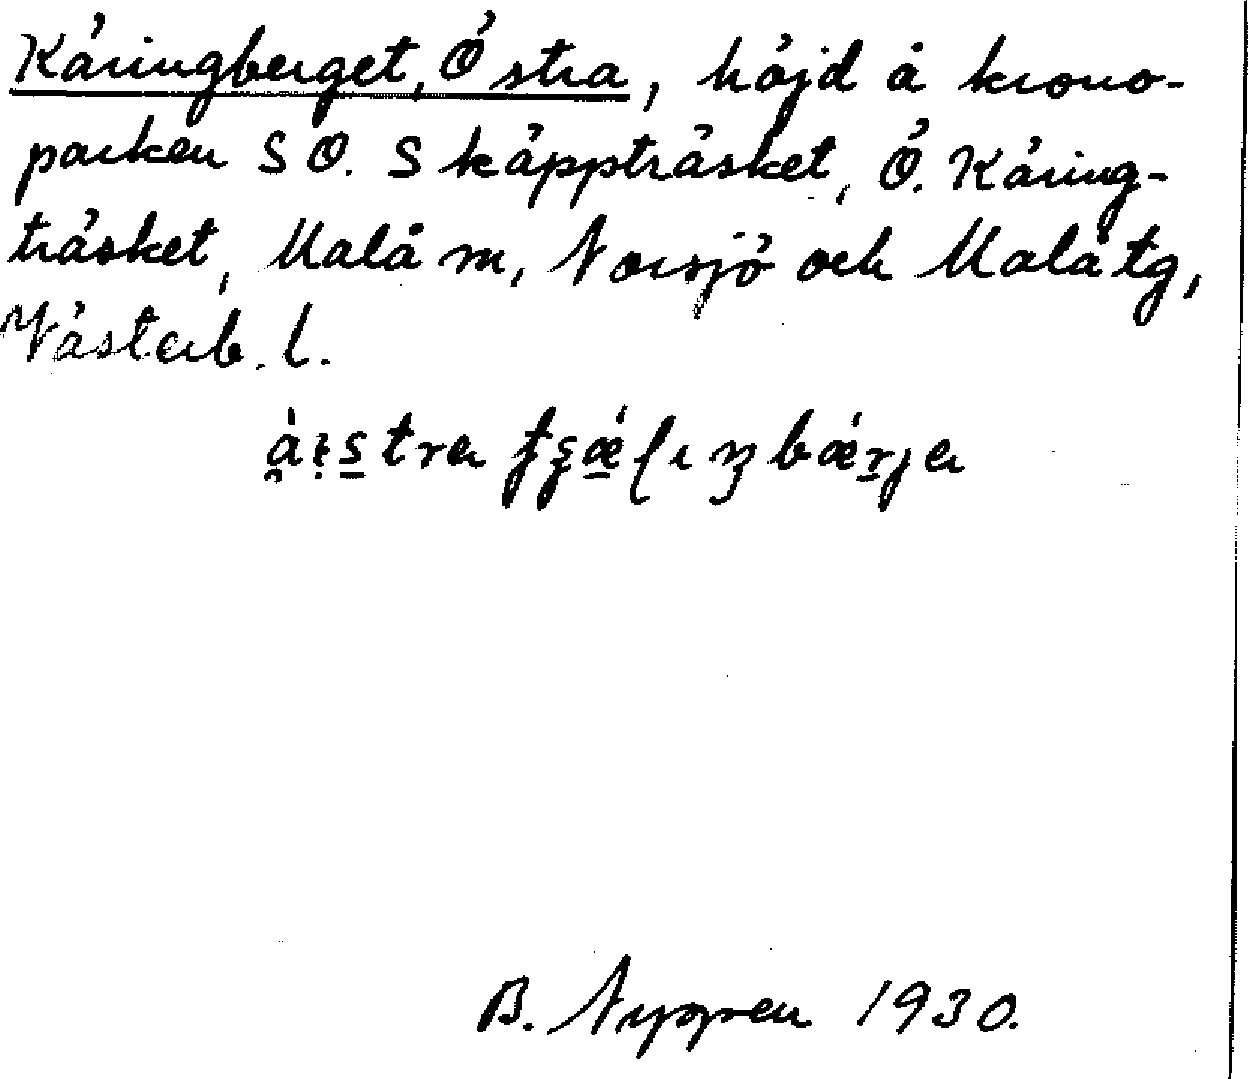 Käringberget, Östra, höjd å krono-
parken SO. Skäppträsket, Ö. Käring-
träsket, Malå m, Norsjö och Malå tg,
Västerb. l.
B. Nyssen 1930.